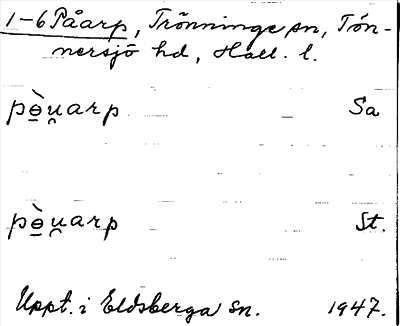 1-6 Påarp, Trönninge sn, Tön-
nersjö hd, Hall. l.
pɵ̠̀u̯arp Sa
pɵ̠̀u̯arp St.
Uppt. i Eldsberga sn. 1947.